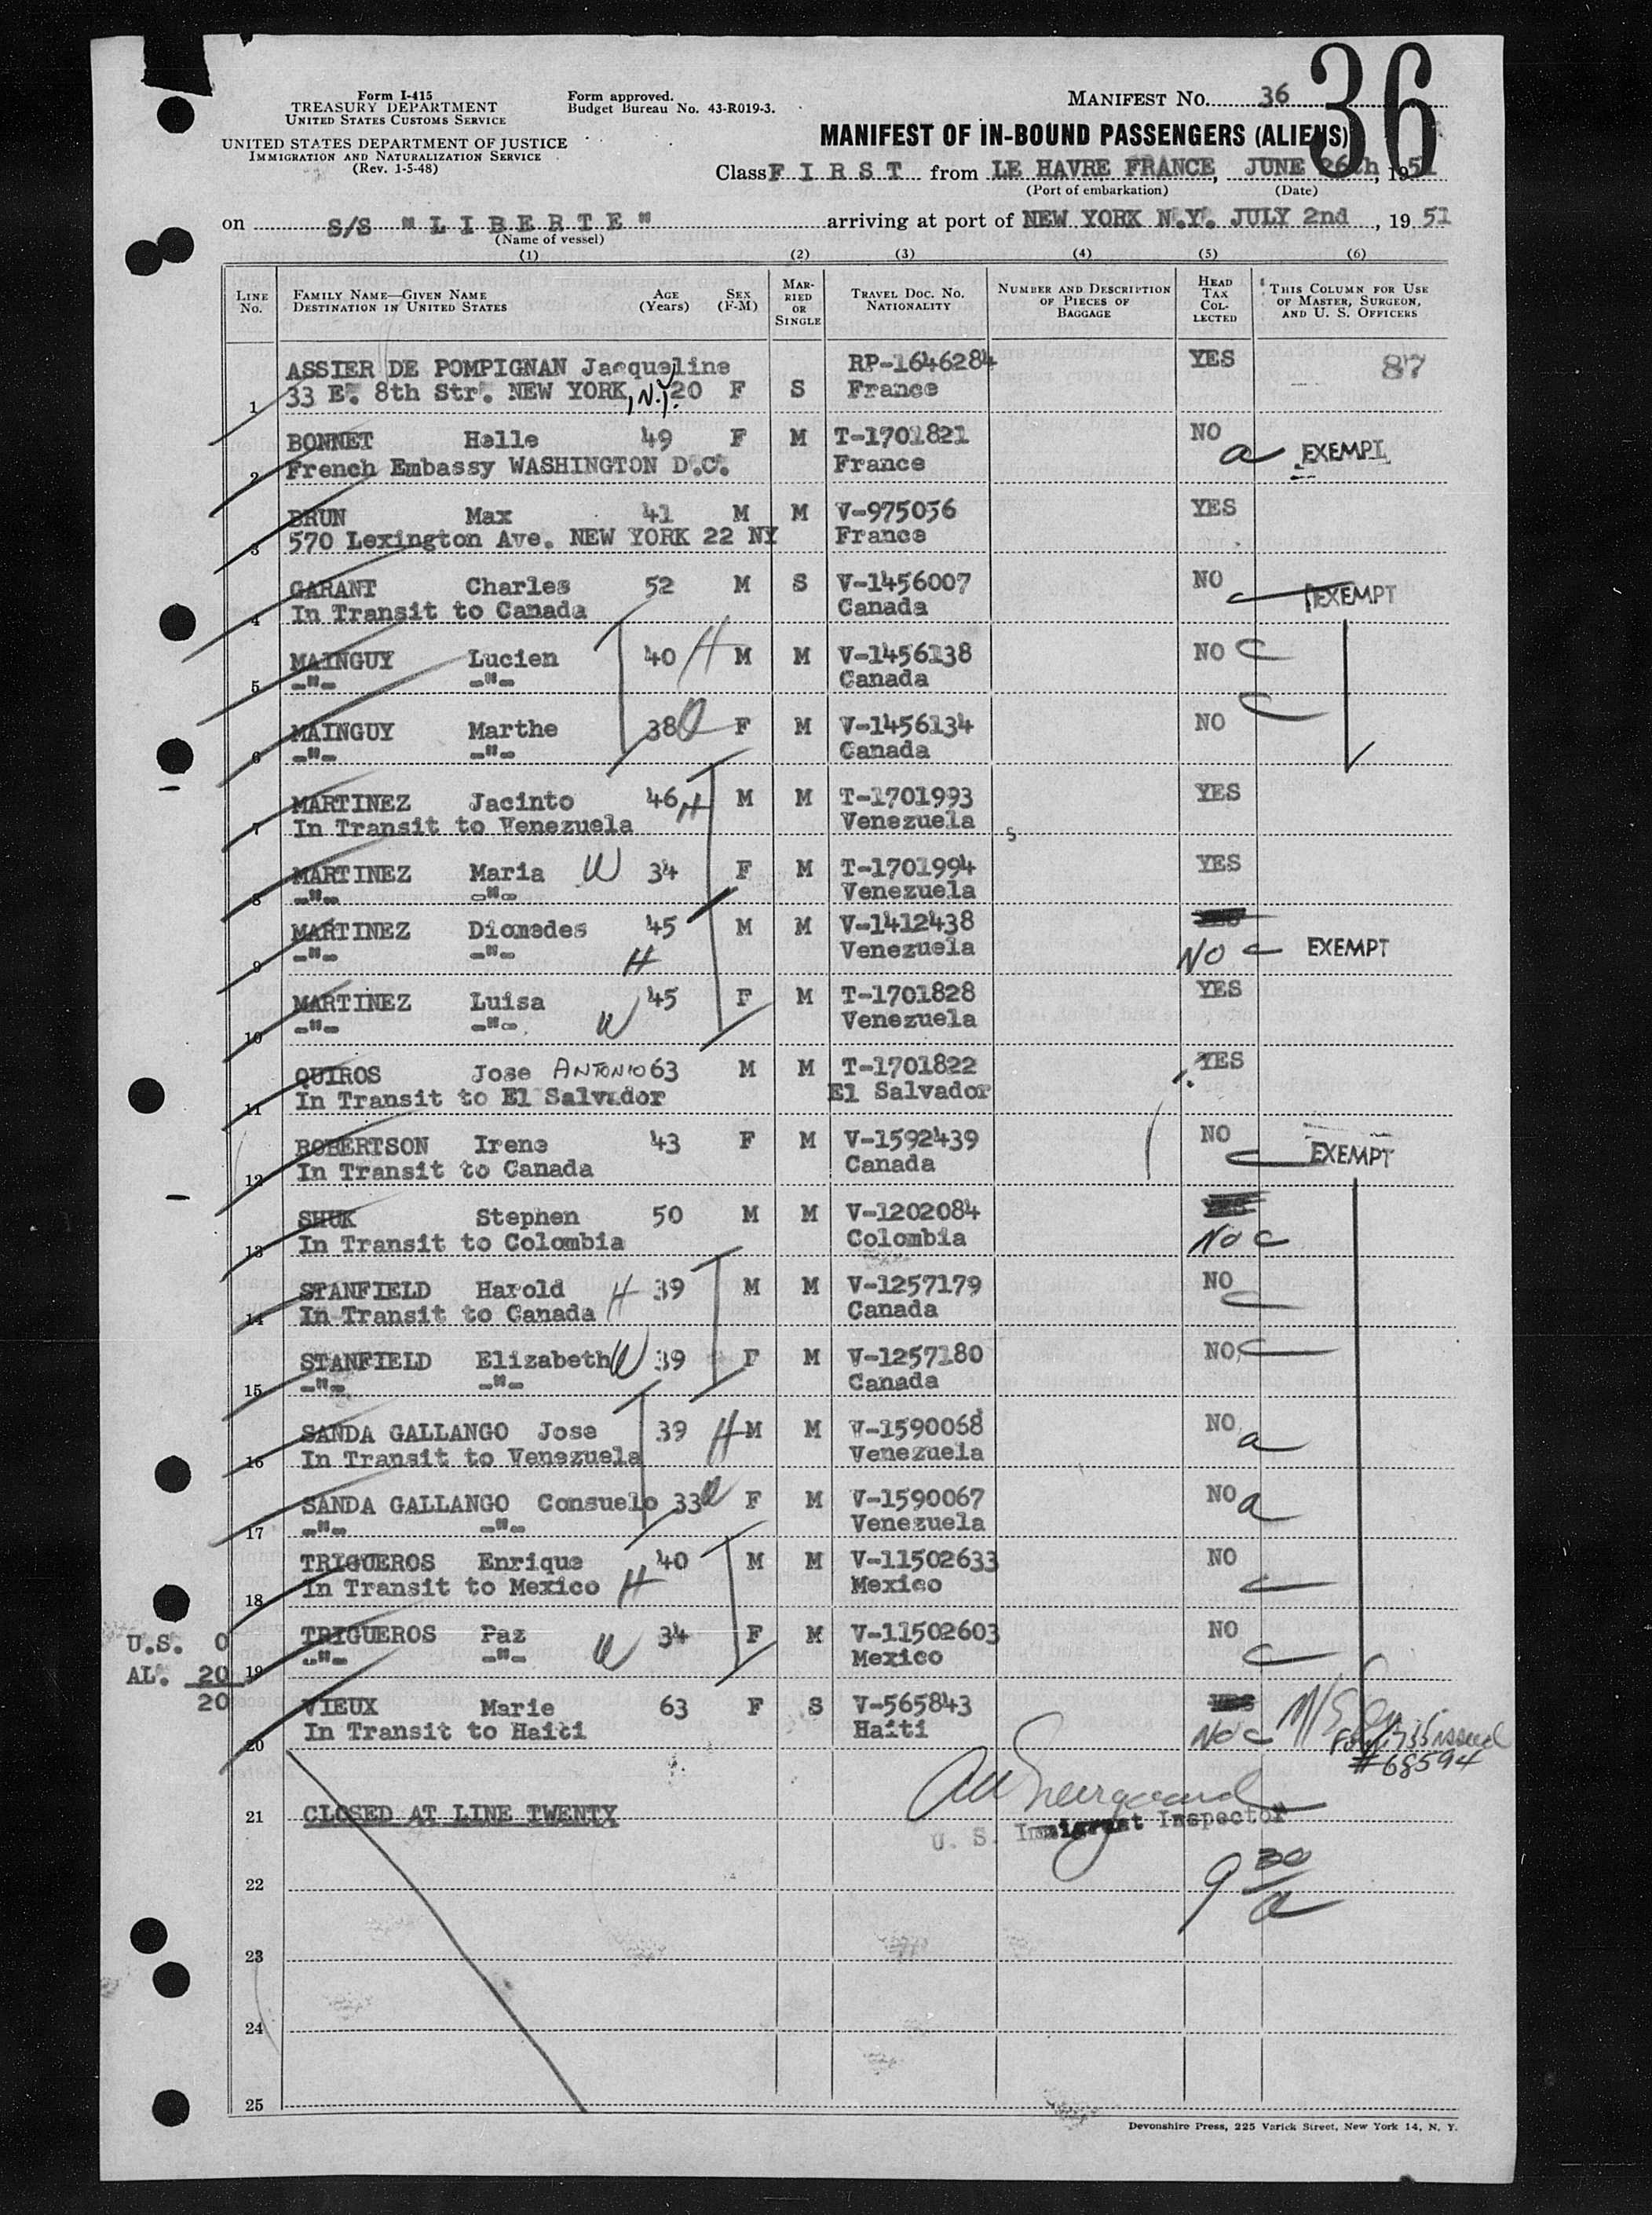 36
Form I-415
TREASURY DEPARTMENT
UNITED STATES CUSTOMS SERVICE
UNITED STATES DEPARTMENT OF JUSTICE
IMMIGRATION AND NATURALIZATION SERVICE
(Rev. 1-5-48)
Form approved.
Budget Bureau No. 43-R019-3.
MANIFEST NO. 36
MANIFEST OF IN-BOUND PASSENGERS (ALIENS)
Class F I R S T from LE HAVRE FRANCE, JUNE 26th, 1951
(Port of embarkation) (Date)
on S/S "L I B E R T E" arriving at port of NEW YORK N.Y. JULY 2nd, 1951
(Name of vessel)
(1) (2) (3) (4) (5) (6)
LINE NO. FAMILY NAME—GIVEN NAME DESTINATION IN UNITED STATES AGE (Years) SEX (F-M) MARRIED OR SINGLE TRAVEL DOC. NO. NATIONALITY NUMBER AND DESCRIPTION OF PIECES OF BAGGAGE HEAD TAX COLLECTED THIS COLUMN FOR USE OF MASTER, SURGEON, AND U. S. OFFICERS
ASSIER DE POMPIGNAN Jacqueline RP-1646284 YES 87
1 33 E. 8th Str. NEW YORK, N.Y. 20 F S France
BONNET Helle 49 F M T-1701821 NO a EXEMPT
2 French Embassy WASHINGTON D.C. France
BRUN Max 41 M M V-975036 YES
3 570 Lexington Ave. NEW YORK 22 NY France
GARANT Charles 52 M S V-1456007 NO c EXEMPT
4 In Transit to Canada Canada
MAINGUY Lucien 40 H M M V-1456138 NO c
5 -"- -"- Canada
MAINGUY Marthe 38 W F M V-1456134 NO c
6 -"- -"- Canada
MARTINEZ Jacinto 46 H M M T-1701993 YES
7 In Transit to Venezuela Venezuela s
MARTINEZ Maria W 34 F M T-1701994 YES
8 -"- -"- Venezuela
MARTINEZ Diomedes 45 M M V-1412438
9 -"- -"- H Venezuela NO c EXEMPT
MARTINEZ Luisa 45 F M T-1701828 YES
10 -"- -"- W Venezuela
QUIROS Jose ANTONIO 63 M M T-1701822 YES
11 In Transit to El Salvador El Salvador
ROBERTSON Irene 43 F M V-1592439 NO c EXEMPT
12 In Transit to Canada Canada
SHUK Stephen 50 M M V-1202084
13 In Transit to Colombia Colombia No c
STANFIELD Harold H 39 M M V-1257179 NO c
14 In Transit to Canada Canada
STANFIELD Elizabeth W 39 F M V-1257180 NO c
15 -"- -"- Canada
SANDA GALLANGO Jose 39 H M M V-1590068 NO a
16 In Transit to Venezuela Venezuela
SANDA GALLANGO Consuelo 33 W F M V-1590067 NO a
17 -"- -"- Venezuela
TRIGUEROS Enrique 40 M M V-11502633 NO c
18 In Transit to Mexico H Mexico
U.S. 0 TRIGUEROS Paz W 34 F M V-11502603 NO c
AL. 20 19 -"- -"- Mexico
20 VIEUX Marie 63 F S V-565843
20 In Transit to Haiti Haiti No c issued
#68594
21 CLOSED AT LINE TWENTY
U. S. Immigrant Inspector
22 9 30/a
23
24
25
Devonshire Press, 225 Varick Street, New York 14, N. Y.